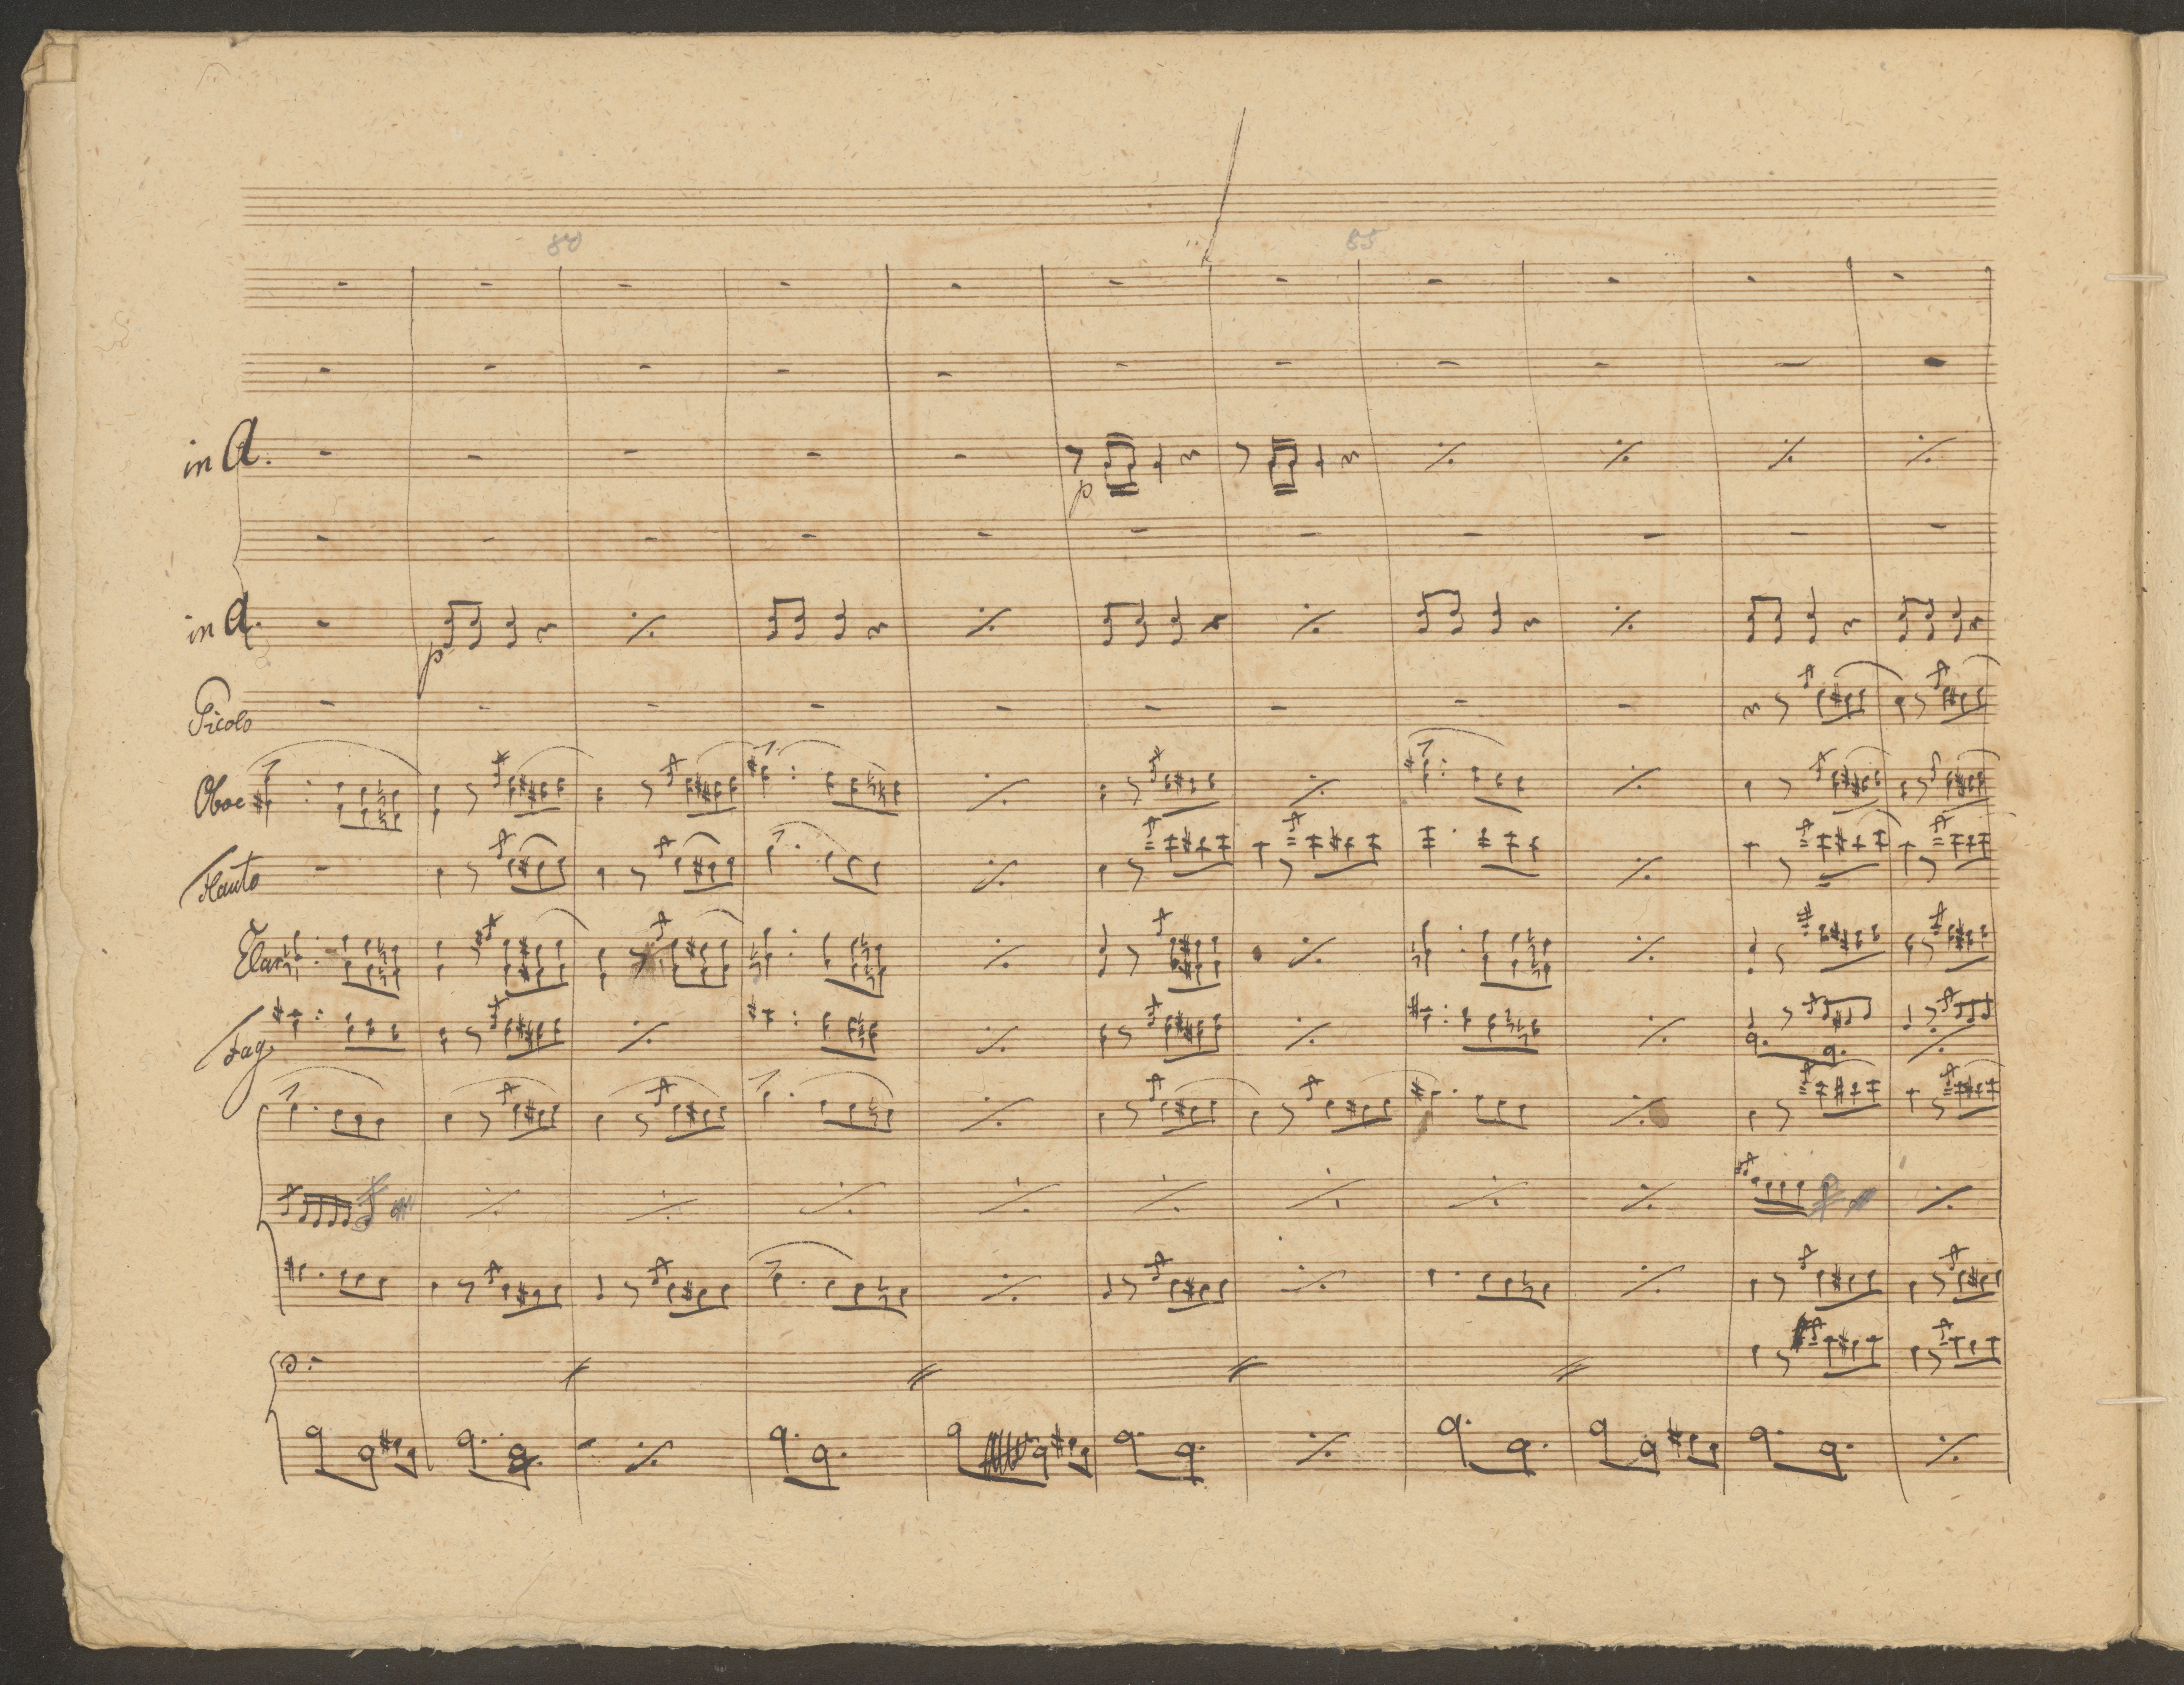 80 85
in A.
p
in A.
p
Picolo
Oboe
Flauto
Clar
Fag.